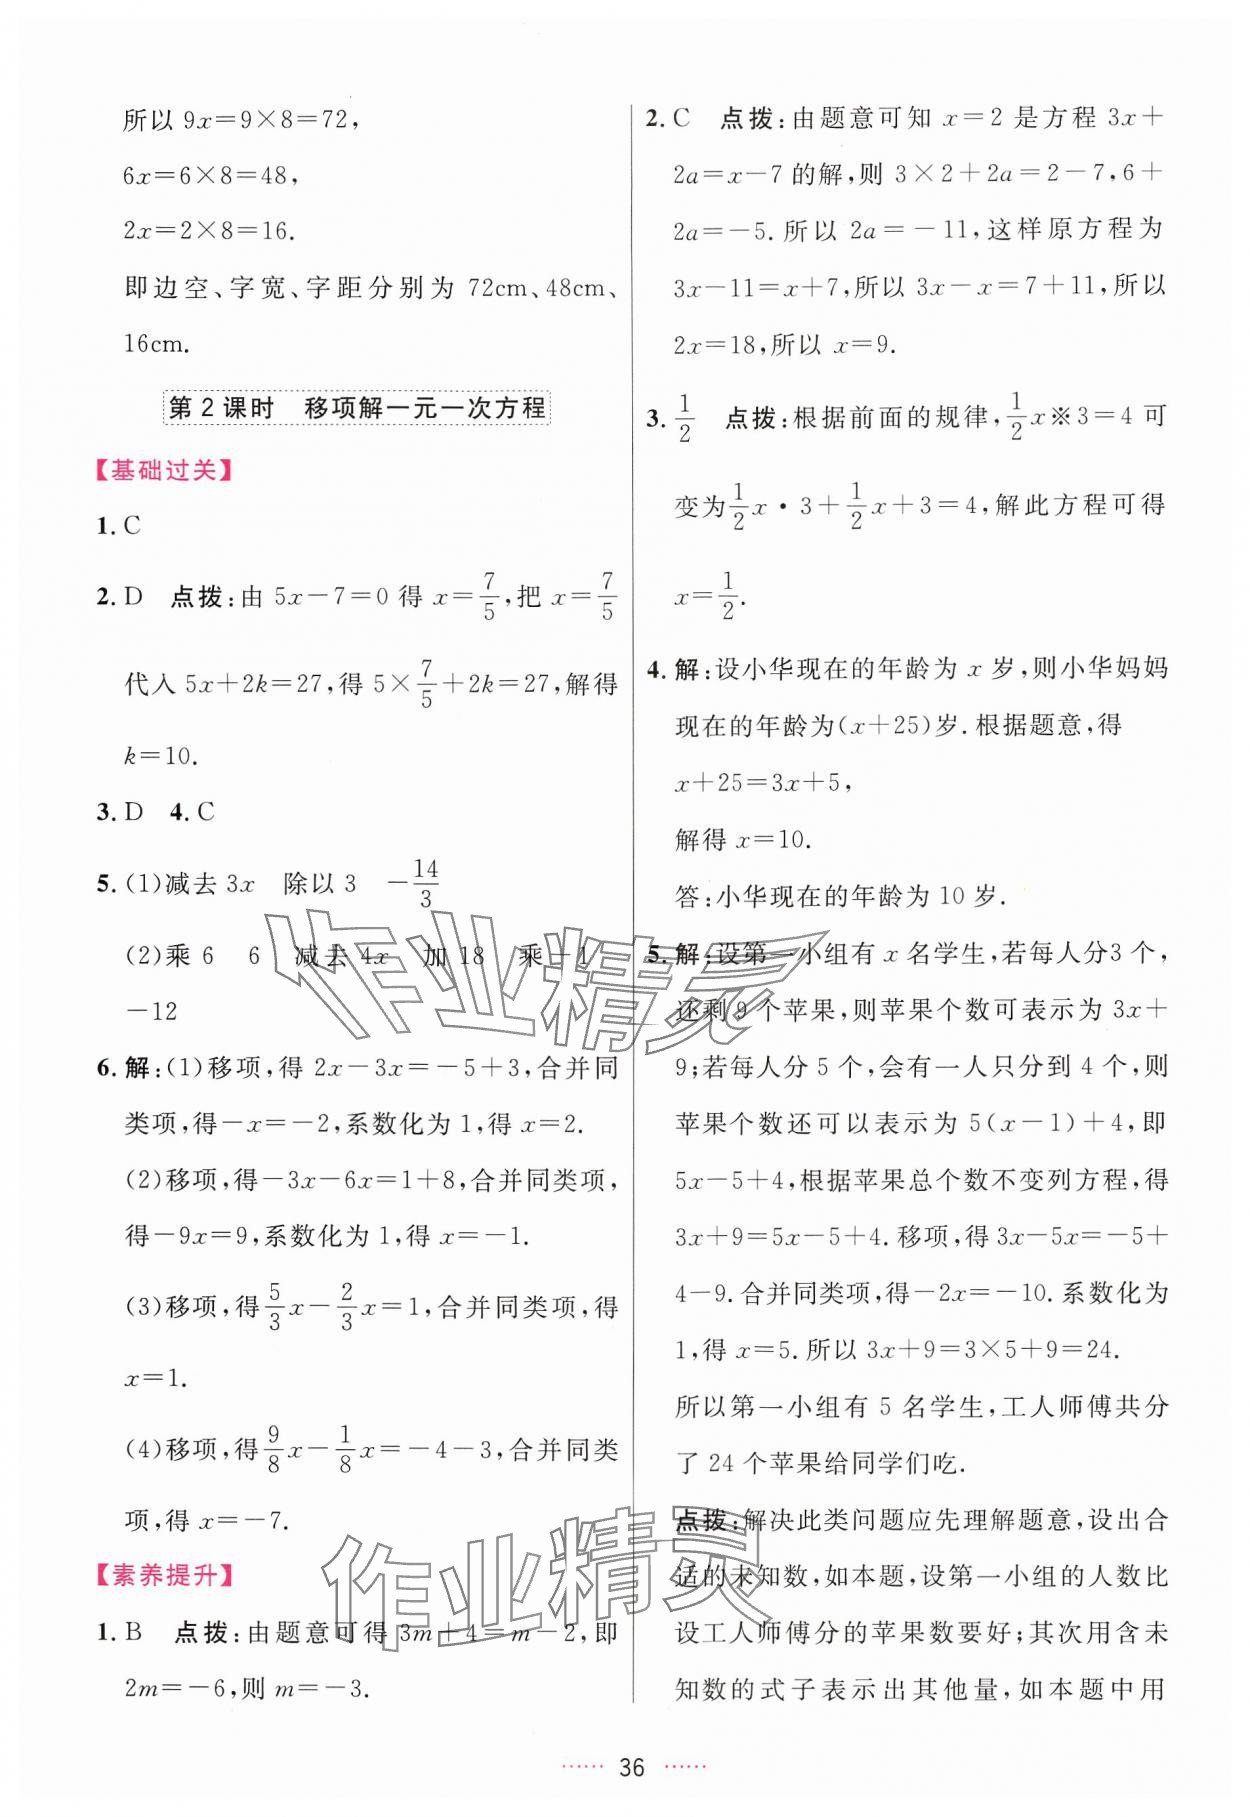 所以 9x=9×8=72,
6x=6×8=48,
2x=2×8=16.
即边空、字宽、字距分别为 72cm、48cm、
16cm.
第 2 课时　移项解一元一次方程
【基础过关】
1. C
2. D　点拨:由 5x-7=0 得 x=7/5,把 x=7/5
代入 5x+2k=27,得 5×7/5+2k=27,解得
k=10.
3. D　4. C
5. (1)减去 3x　除以 3　-14/3
(2)乘 6　6　减去 4x　加 18　乘-1
-12
6. 解:(1)移项,得 2x-3x=-5+3,合并同
类项,得-x=-2,系数化为 1,得 x=2.
(2)移项,得-3x-6x=1+8,合并同类项,
得-9x=9,系数化为 1,得 x=-1.
(3)移项,得5/3x-2/3x=1,合并同类项,得
x=1.
(4)移项,得9/8x-1/8x=-4-3,合并同类
项,得 x=-7.
【素养提升】
1. B　点拨:由题意可得 3m+4=m-2,即
2m=-6,则 m=-3.
2. C　点拨:由题意可知 x=2 是方程 3x+
2a=x-7 的解,则 3×2+2a=2-7,6+
2a=-5.所以 2a=-11,这样原方程为
3x-11=x+7,所以 3x-x=7+11,所以
2x=18,所以 x=9.
3. 1/2　点拨:根据前面的规律,1/2x※3=4 可
变为1/2x·3+1/2x+3=4,解此方程可得
x=1/2.
4. 解:设小华现在的年龄为 x 岁,则小华妈妈
现在的年龄为(x+25)岁.根据题意,得
x+25=3x+5,
解得 x=10.
答:小华现在的年龄为 10 岁.
5. 解:设第一小组有 x 名学生,若每人分3 个,
还剩 9 个苹果,则苹果个数可表示为 3x+
9;若每人分 5 个,会有一人只分到 4 个,则
苹果个数还可以表示为 5(x-1)+4,即
5x-5+4,根据苹果总个数不变列方程,得
3x+9=5x-5+4.移项,得 3x-5x=-5+
4-9.合并同类项,得-2x=-10.系数化为
1,得 x=5.所以 3x+9=3×5+9=24.
所以第一小组有 5 名学生,工人师傅共分
了 24 个苹果给同学们吃.
点拨:解决此类问题应先理解题意,设出合
适的未知数,如本题,设第一小组的人数比
设工人师傅分的苹果数要好;其次用含未
知数的式子表示出其他量,如本题中用
36
作业精灵
作业精灵